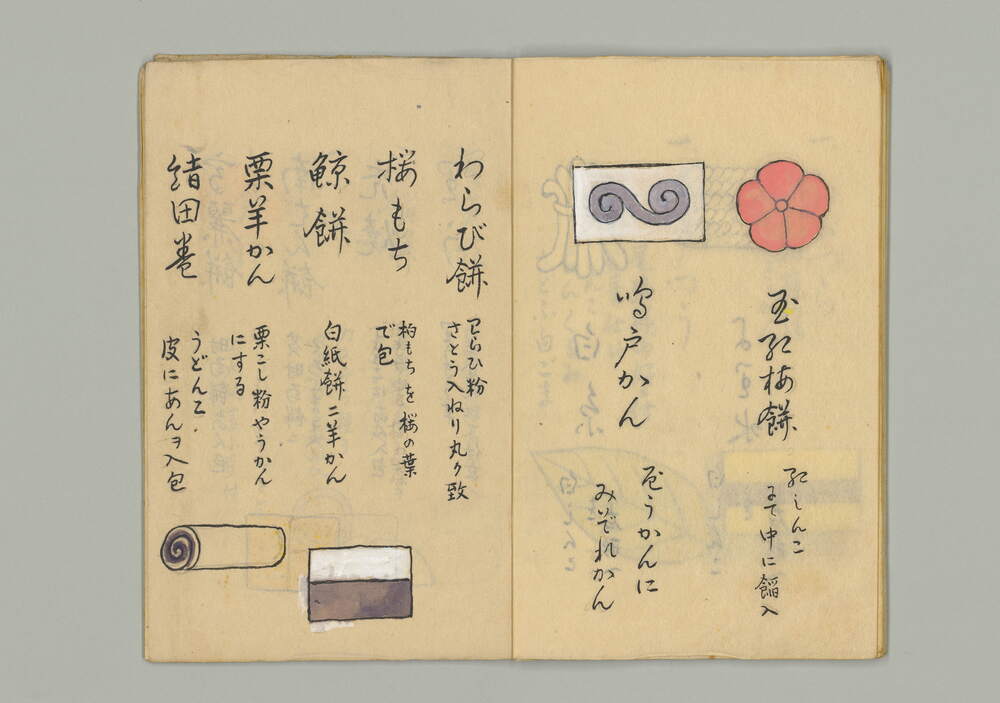 玉紅梅餅
紅しんこ
にて中に餡入
鳴戸かん
ようかんに
みぞれかん
わらび餅
わらひ粉
さとう入ねり丸く致
桜もち
柏もちを桜の葉
で包
鯨餅
白紙餅ニ羊かん
栗羊かん
栗こし粉やうかん
にする
緒田巻
うどんこ
皮にあんヲ入包